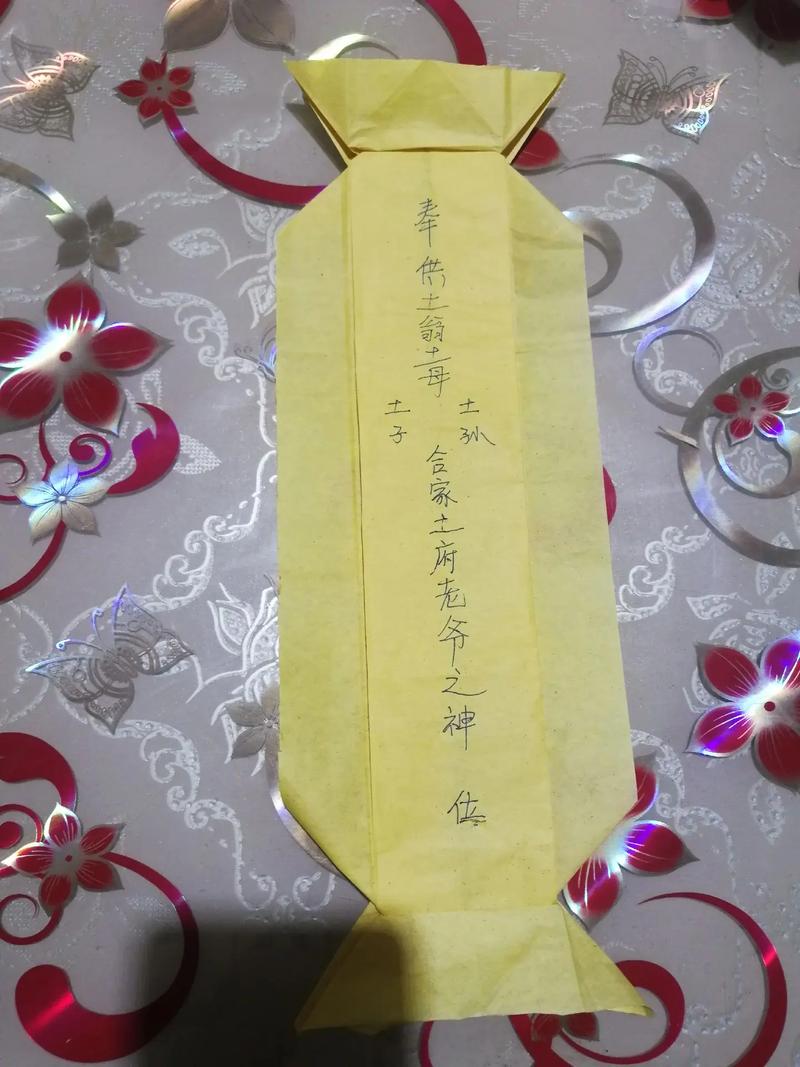 奉供土翁土母
土孙
土子
合家土府老爷之神位